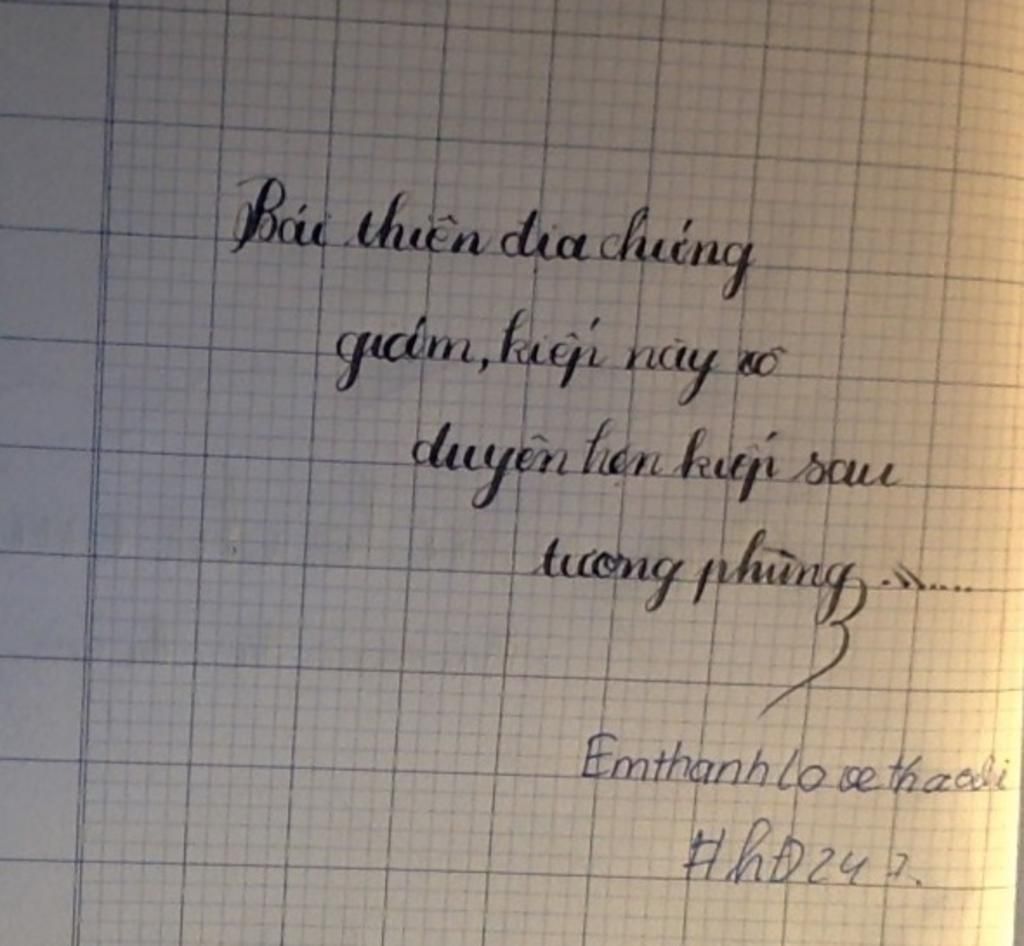 Bái thiên địa chứng
giám, kiếp này vô
duyên hẹn kiếp sau
tương phùng.........
Emthanh lo ve thaodi
#hD24